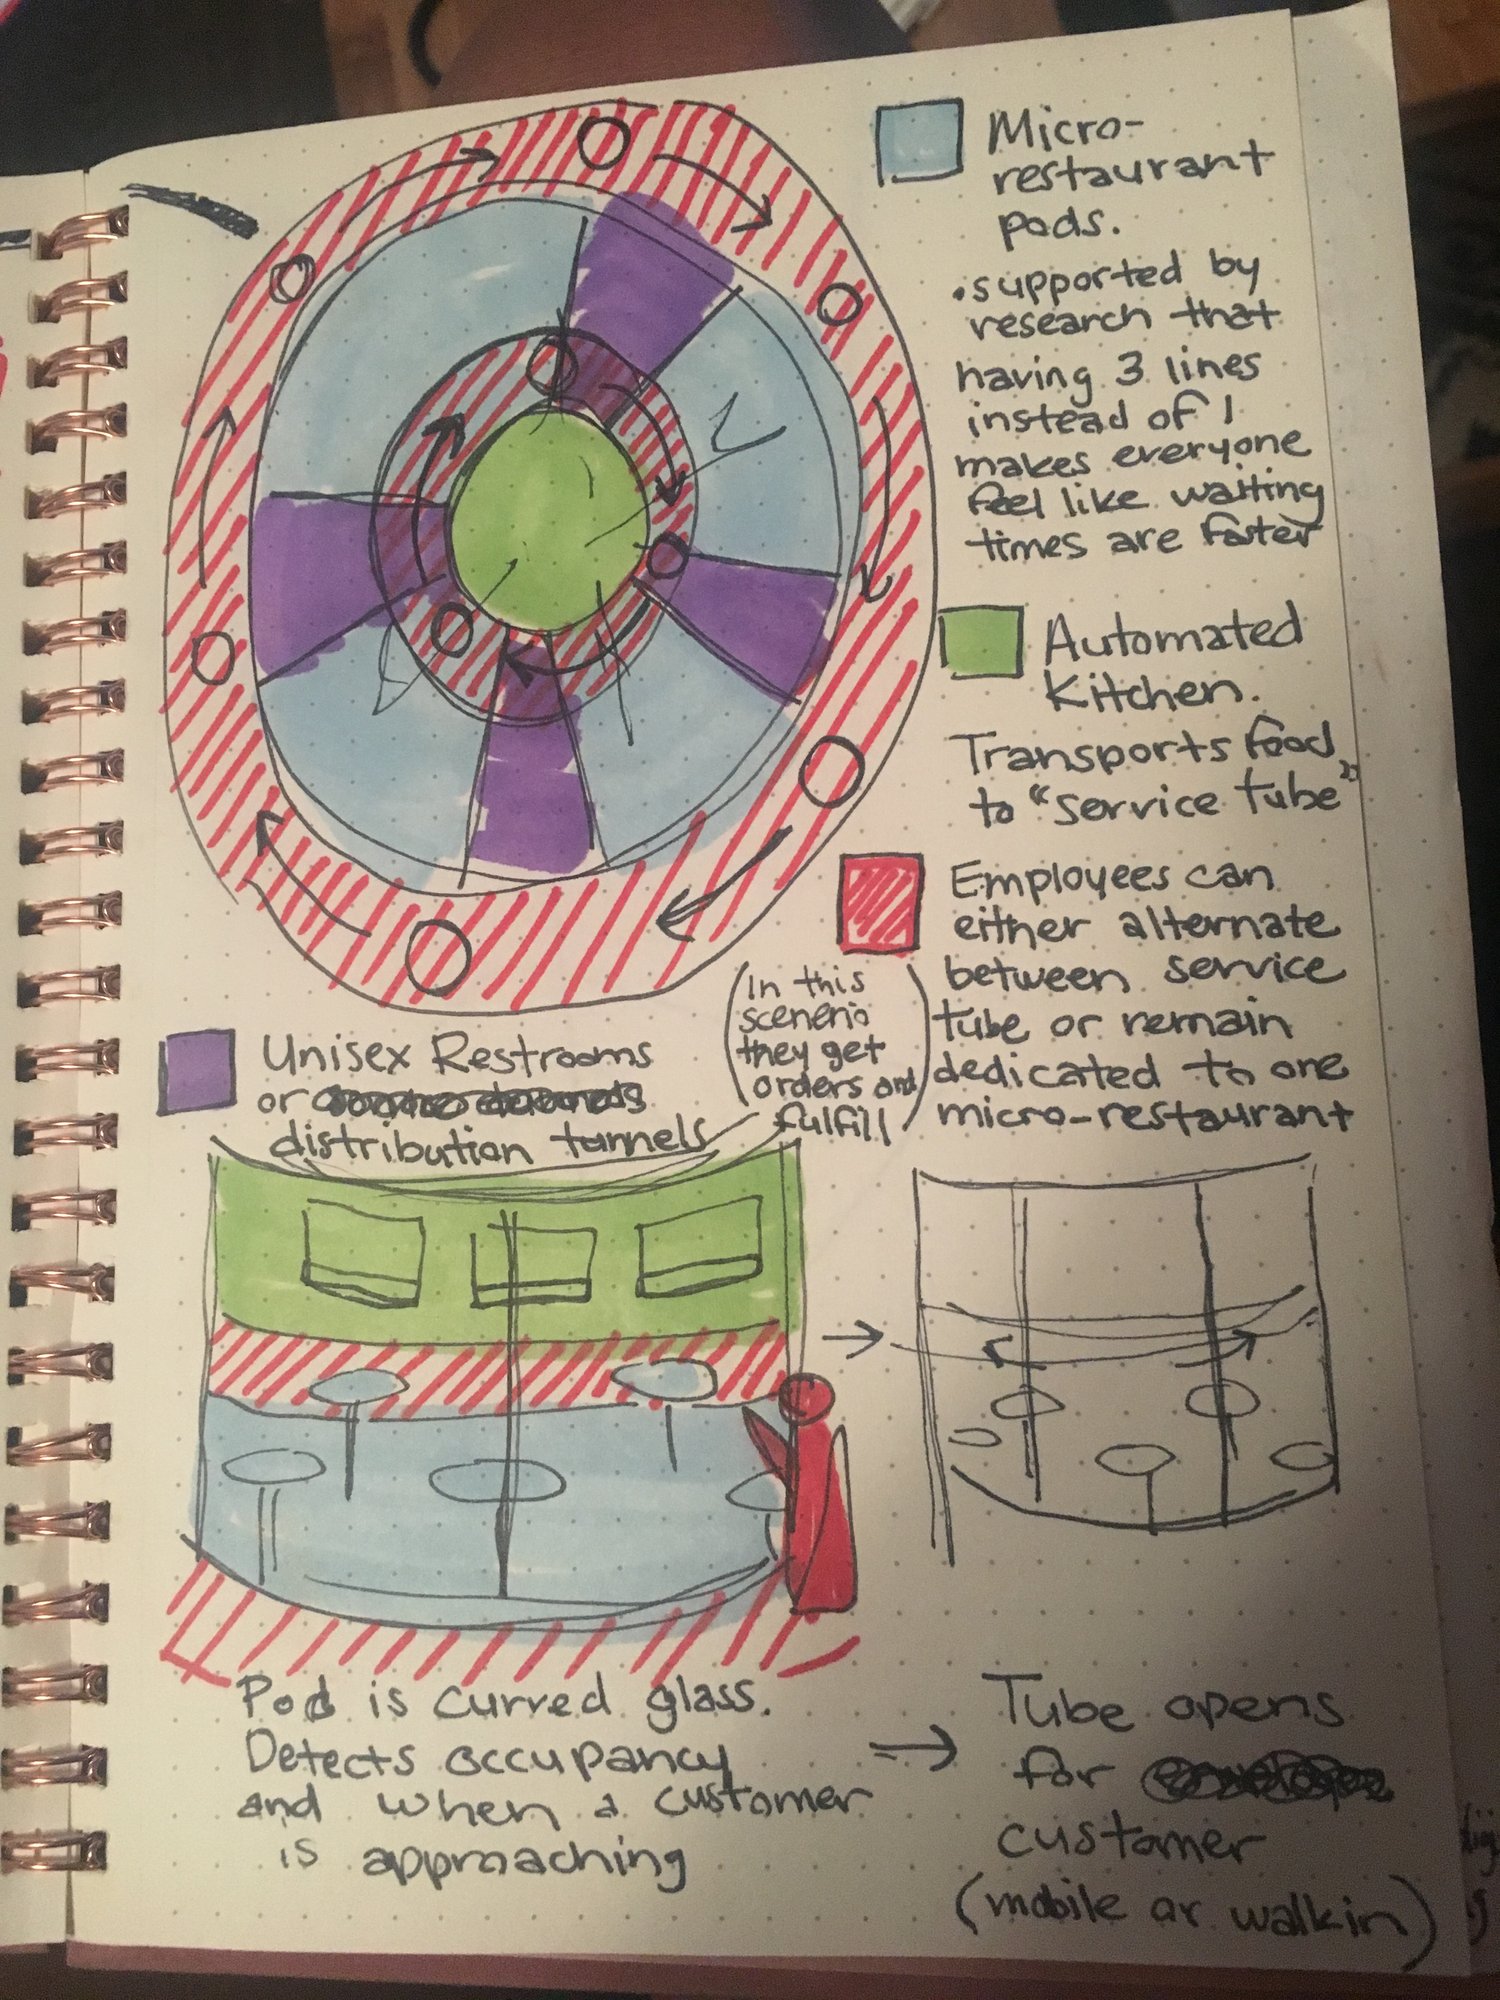 Micro-
restaurant
pods.
• supported by
research that
having 3 lines
instead of 1
makes everyone
feel like waiting
times are faster
Automated
Kitchen.
Transports food
to "service tube"
Employees can
either alternate
between service
tube or remain
dedicated to one
micro-restaurant
(In this
scenerio
they get
orders and
fulfill)
Unisex Restrooms
or
distribution tunnels
Pod is curved glass.
Detects occupancy
and when a customer
is approaching
Tube opens
for
customer
(mobile or walkin)